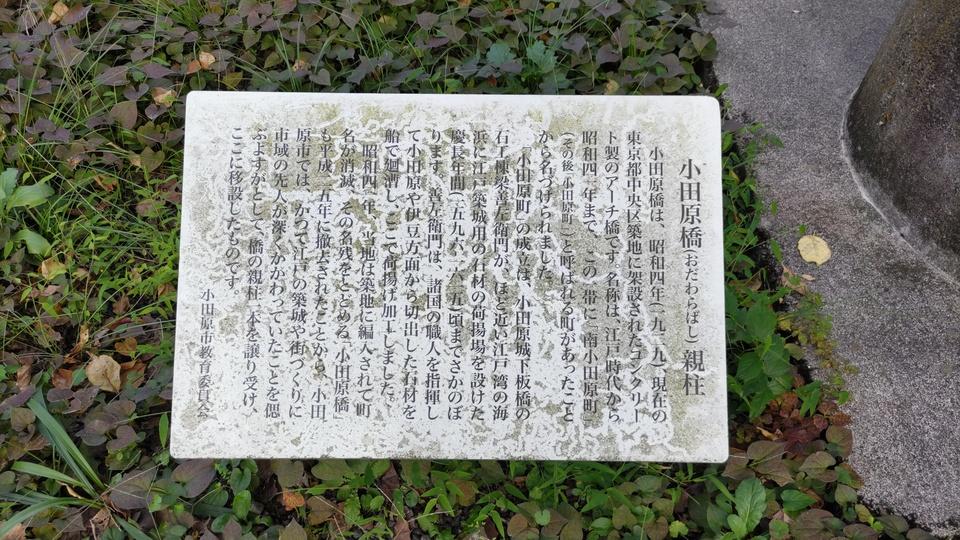 小田原橋(おだわらばし)親柱
小田原橋は、昭和四年(一九二九)、現在の
東京都中央区築地に架設されたコンクリー
ト製のアーチ橋です。名称は、江戸時代から
昭和四一年まで、この一帯に「南小田原町
(その後「小田原町」)」と呼ばれる町があったこと
から名づけられました。
「小田原町」の成立は、小田原城下板橋の
石工棟梁善左衛門が、ほど近い江戸湾の海
浜に江戸築城用の石材の荷揚場を設けた
慶長年間(一五九六-一六一五)頃までさかのぼ
ります。善左衛門は、諸国の職人を指揮し
て小田原や伊豆方面から切出した石材を
船で廻漕し、ここで荷揚げ加工しました。
昭和四一年、当地は築地に編入されて町
名が消滅、その名残をとどめる「小田原橋」
も平成一五年に撤去されたことから、小田
原市では、かつて江戸の築城や街づくりに
市域の先人が深くかかわっていたことを偲
ぶよすがとして、橋の親柱一本を譲り受け、
ここに移設したものです。
小田原市教育委員会